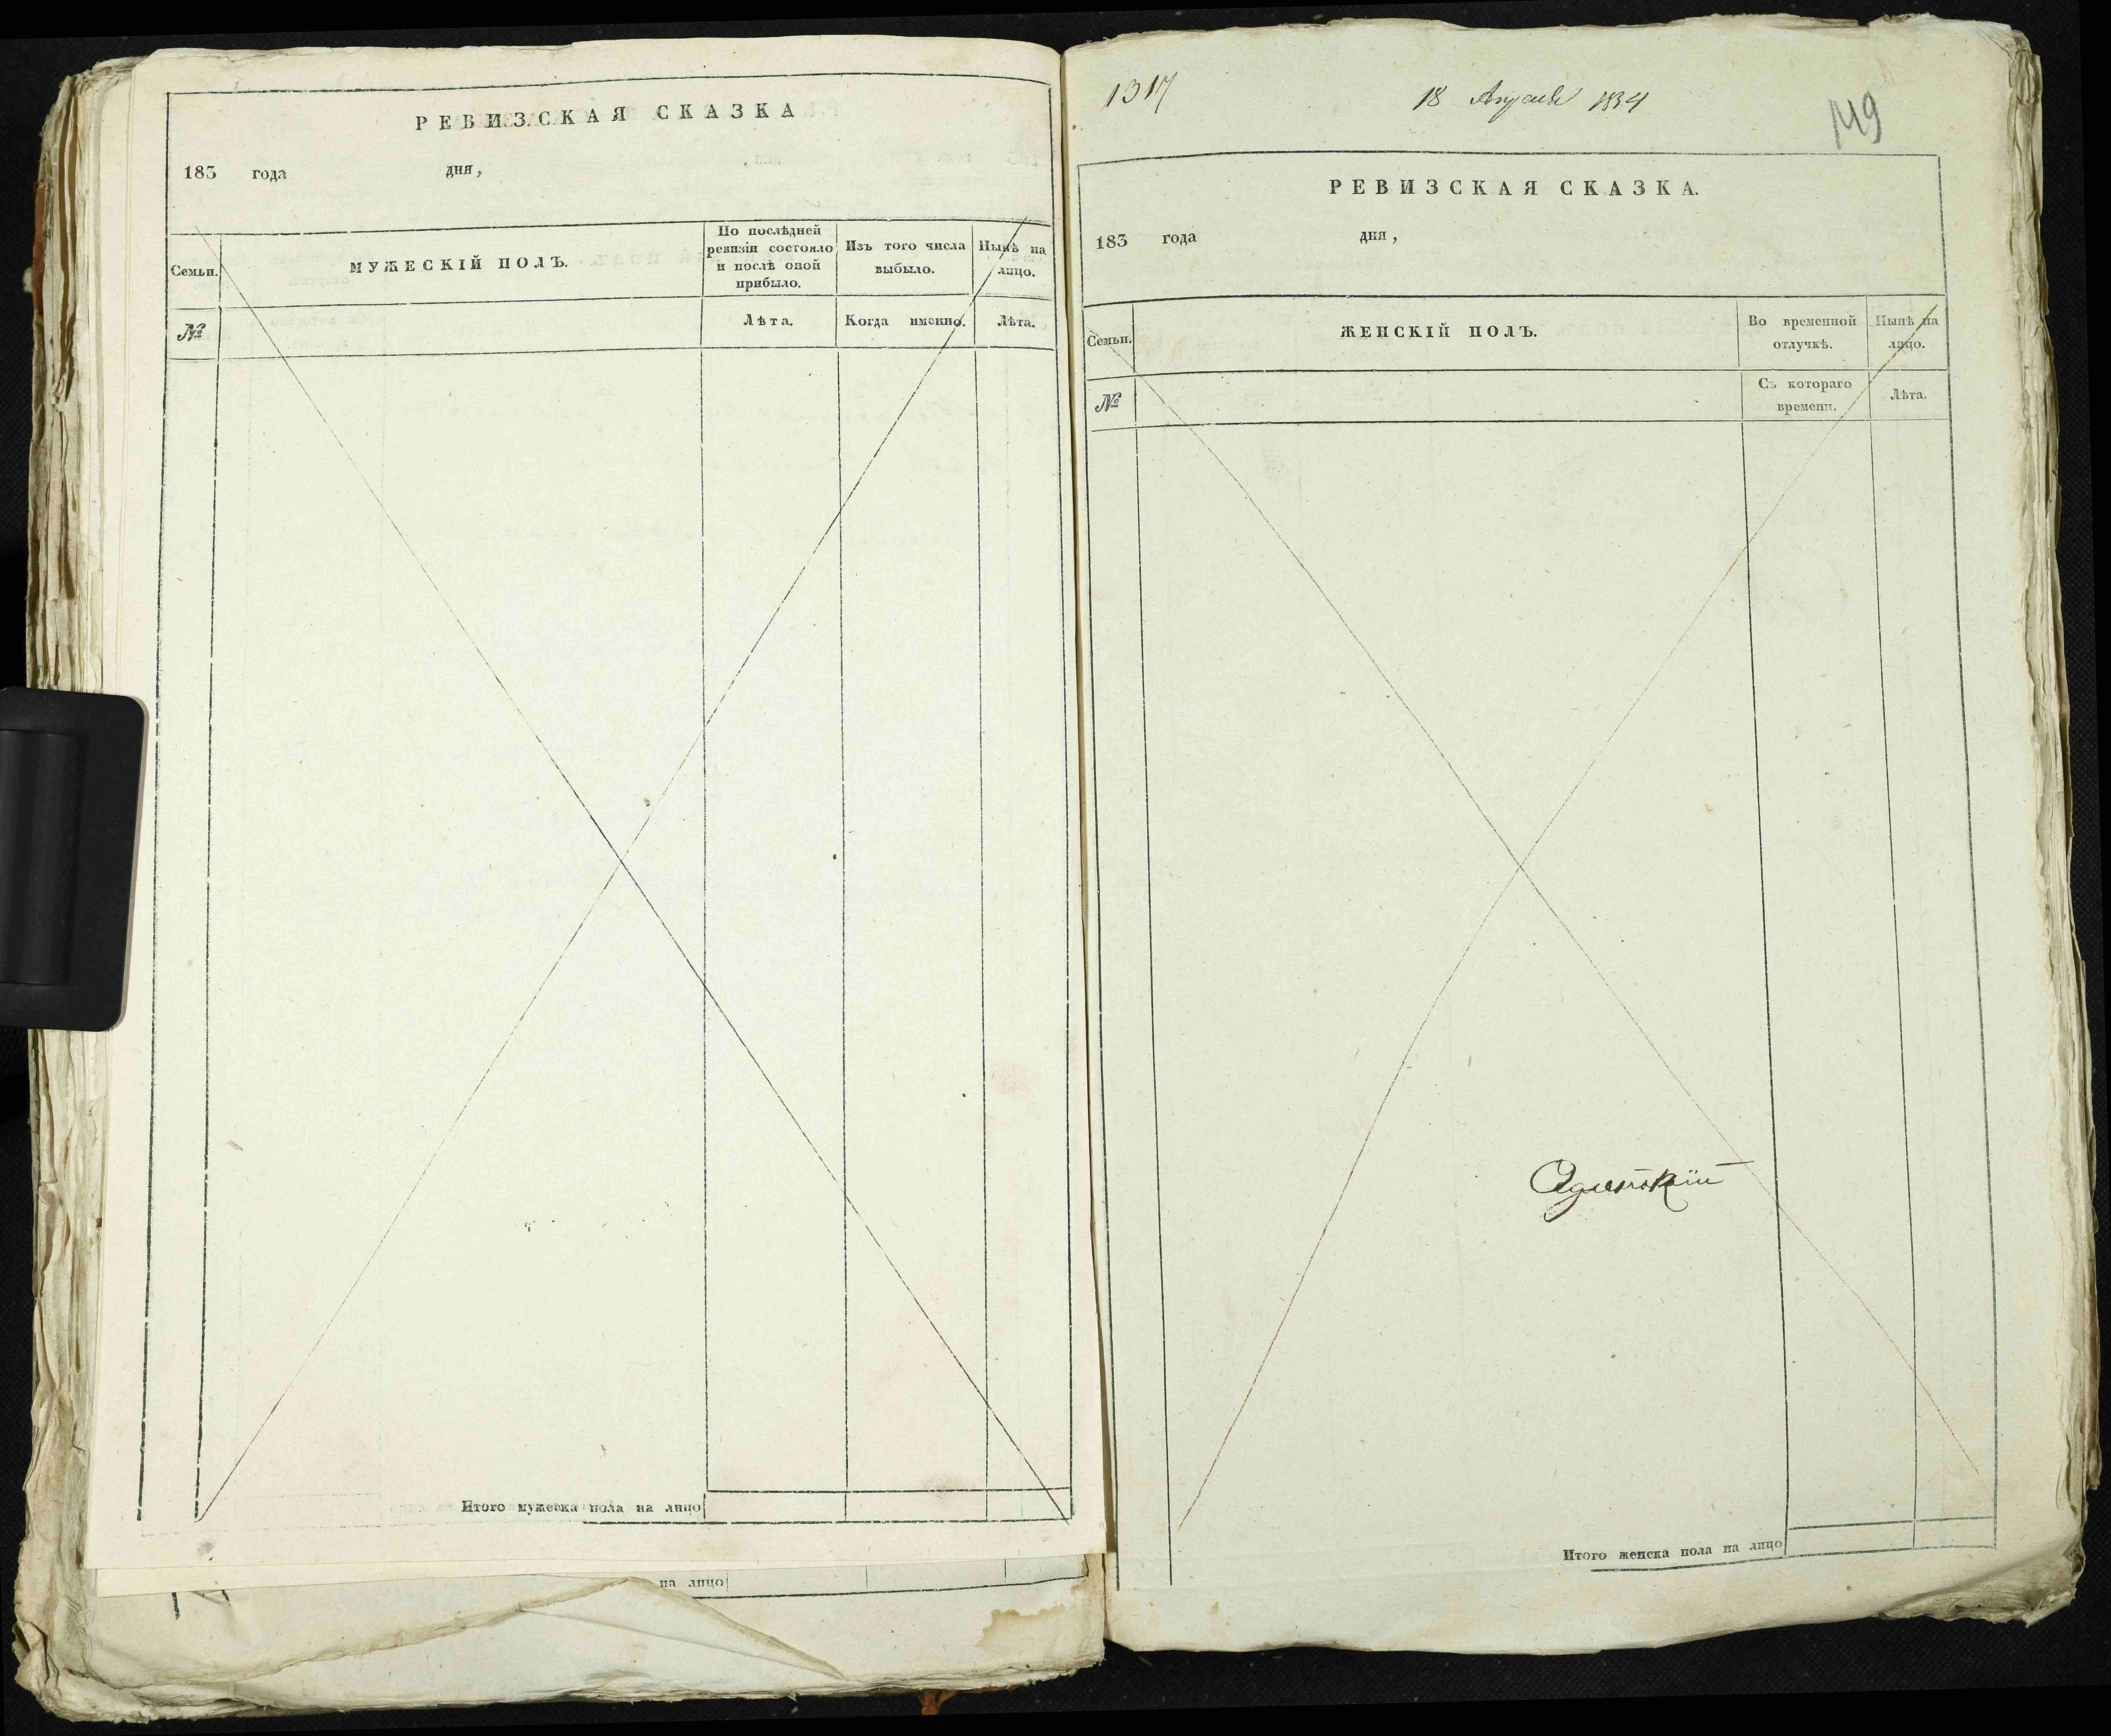 РЕВИЗСКАЯ СКАЗКА
183 года дня,
Семьи.
МУЖЕСКІЙ ПОЛЪ.
По послѣдней ревизіи состояло и послѣ оной прибыло.
Изъ того числа выбыло.
Нынѣ на лицо.
№
Лѣта.
Когда именно.
Лѣта.
Итого мужеска пола на лицо
на лицо
1317
18 1834
149
РЕВИЗСКАЯ СКАЗКА.
183 года дня,
Семьи.
ЖЕНСКІЙ ПОЛЪ.
Во временной отлучкѣ.
Нынѣ на лицо.
№
Съ котораго времени.
Лѣта.
Итого женска пола на лицо